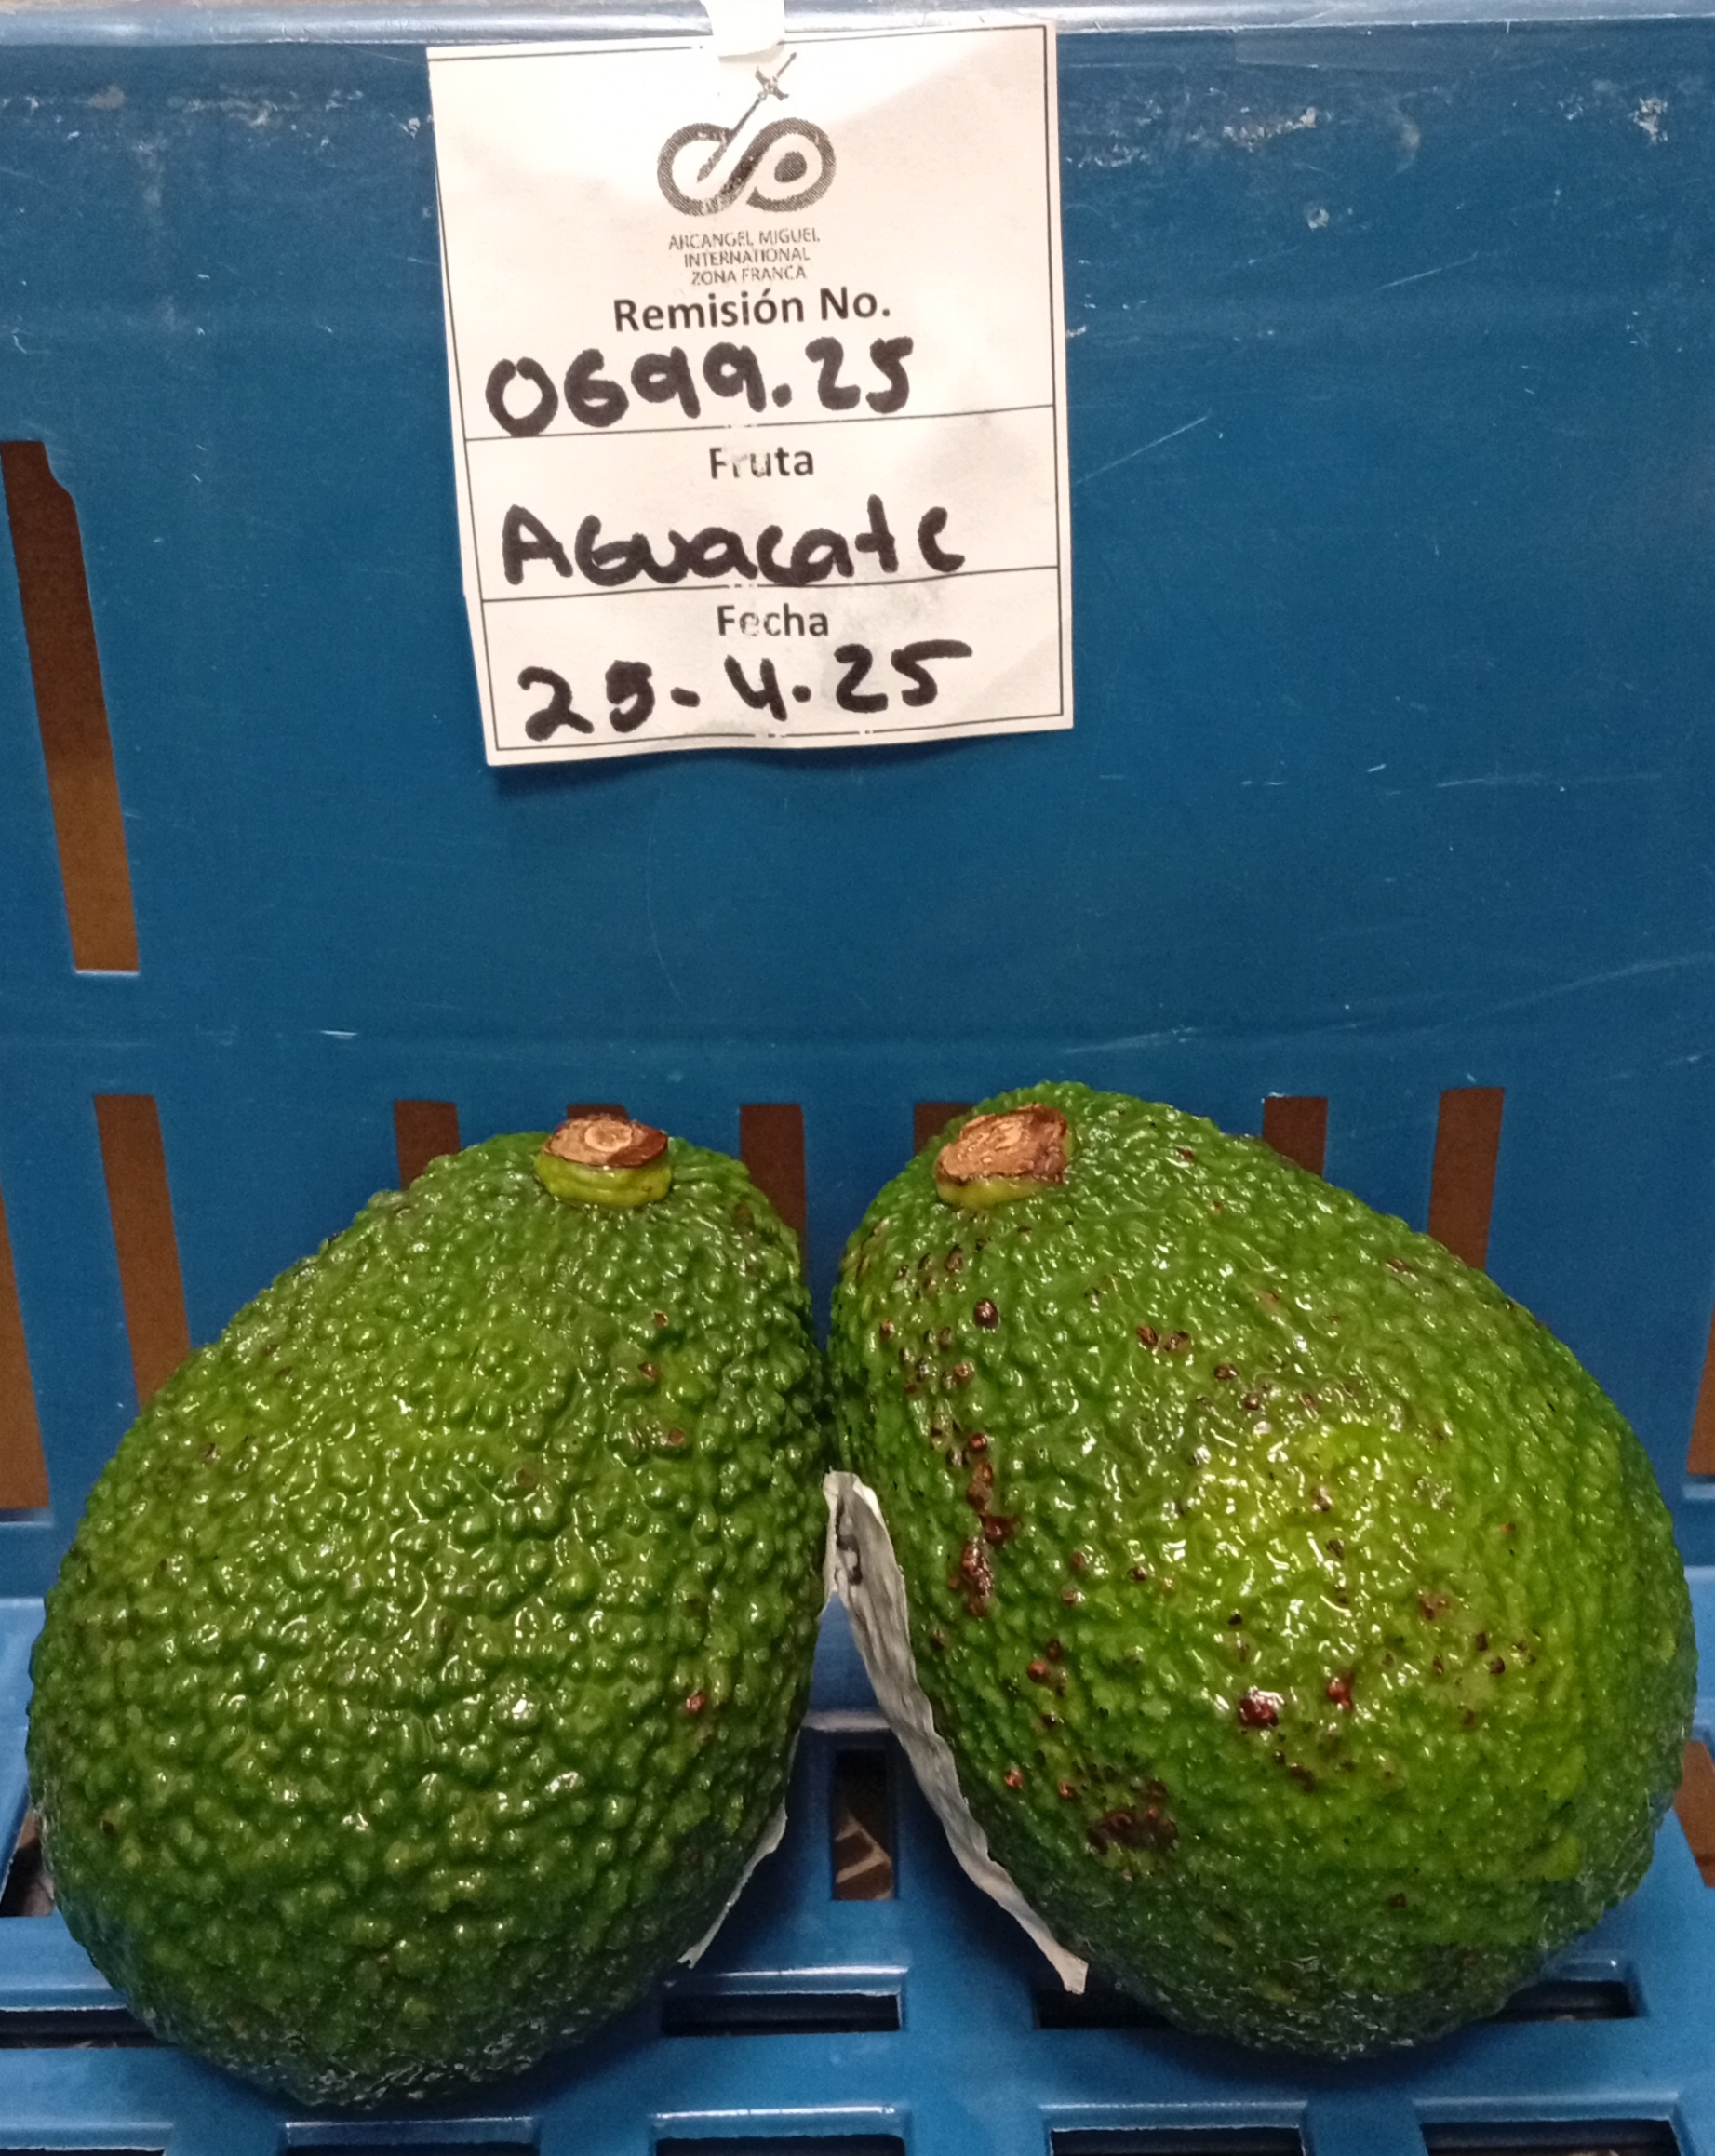 ARCANGEL MIGUEL
INTERNATIONAL
ZONA FRANCA
Remisión No.
0699.25
Fruta
AGuacate
Fecha
25-4.25